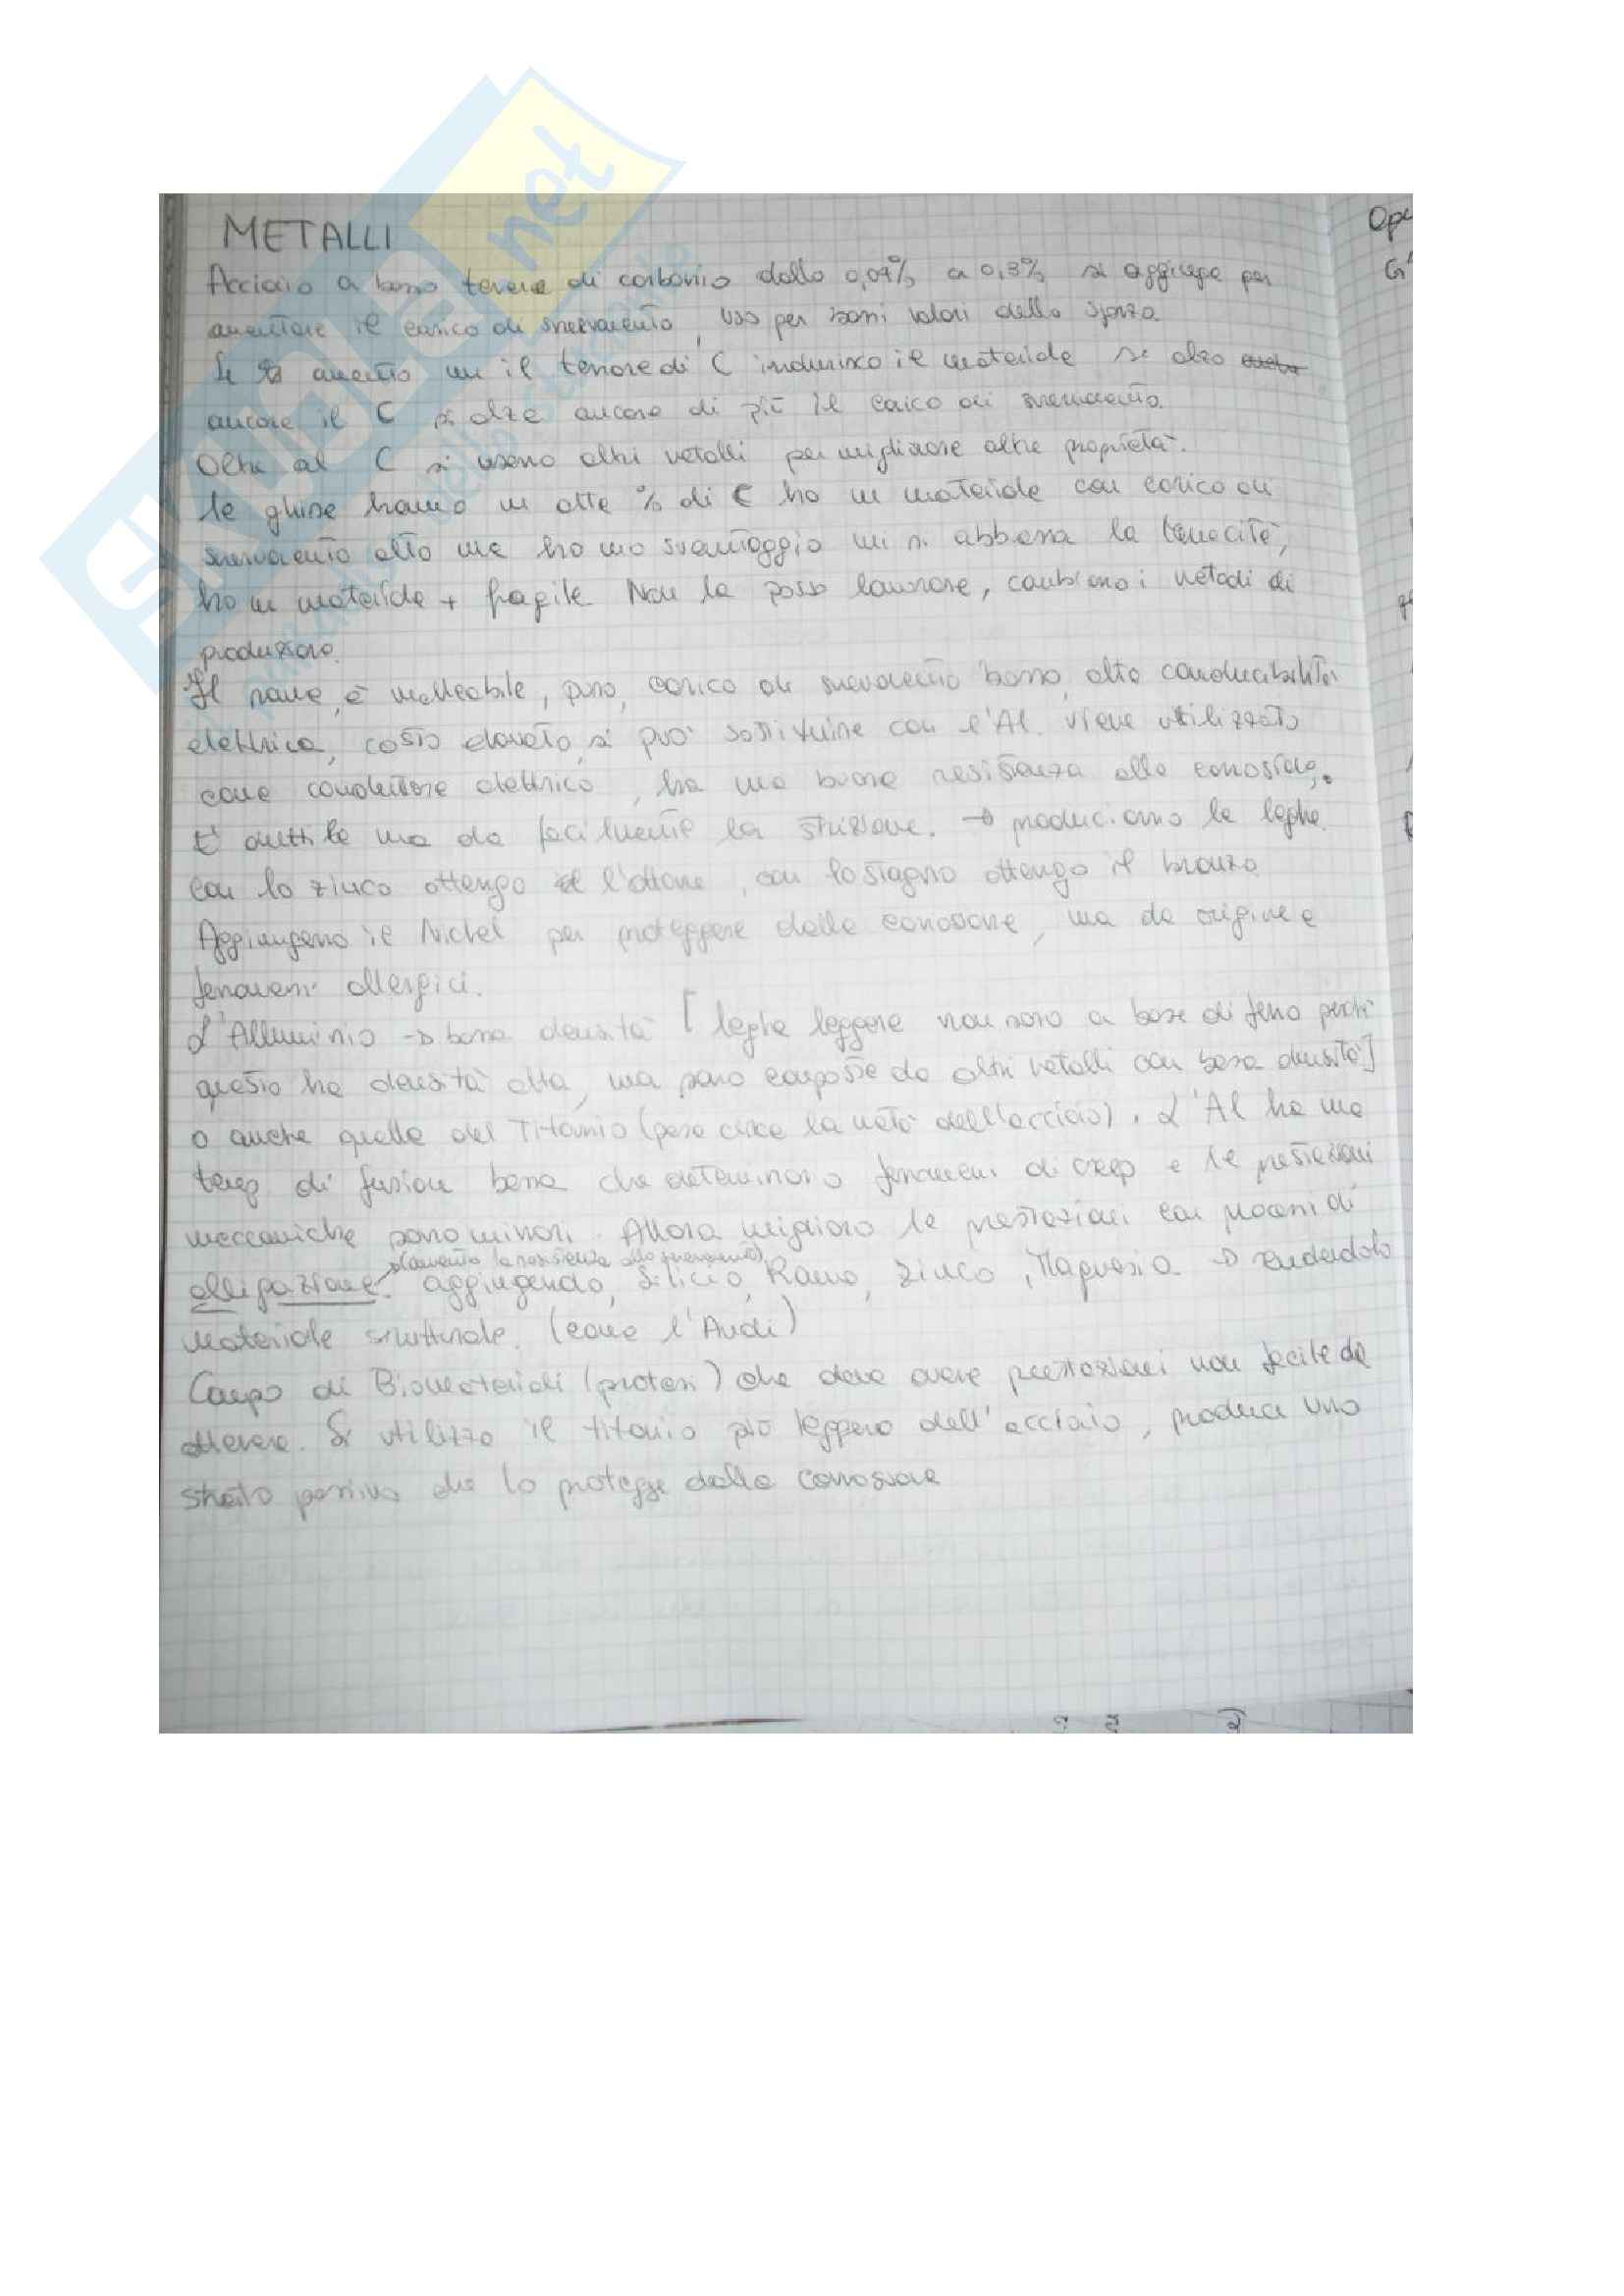 METALLI
Acciaio a basso tenore di carbonio dallo 0,04% a 0,3% si aggiunge per
aumentare il carico di snervamento, uso per bassi valori dello sforzo.
Se aumento un il tenore di C indurisco il materiale se alzo
ancora il C si alza ancora di più il carico di snervamento.
Oltre al C si usano altri metalli per migliorare altre proprietà.
le ghise hanno un alta % di C ho un materiale con carico di
snervamento alto ma ho uno svantaggio mi si abbassa la tenacità,
ho un materiale + fragile. Non la posso lavorare, cambiano i metodi di
produzione.
Il rame è malleabile, puro, carico di snervamento basso, alta conducibilità
elettrica, costo elevato, si può sostituire con l'Al. Viene utilizzato
come conduttore elettrico, ha una buona resistenza alla
E' duttile ma da facilmente la strizione. → produciamo le leghe.
con lo zinco ottengo l'ottone, con lo stagno ottengo il bronzo
Aggiungono il Nichel per proteggere dalla corrosione, ma da origine a
fenomeni allergici.
L'Alluminio → bassa densità [leghe leggere non sono a base di ferro perchè
questo ha densità alta, ma sono composte da altri metalli con bassa densità]
o anche quella del Titanio (pesa circa la metà dell'acciaio). L'Al ha una
temp di fusione bassa che determinano fenomeni di creep e le prestazioni
meccaniche sono minori. Allora miglioro le prestazioni con processi di
→(aumento la resistenza allo snervamento)
alligazione. aggiungendo, Silicio, Rame, Zinco, Magnesio → rendendolo
materiale strutturale. (come l'Audi)
Campo di Biomateriali (protesi) che deve avere prestazioni non facile da
ottenere. Si utilizza il titanio più leggero dell'acciaio, produce uno
strato passivo che lo protegge dalla corrosione